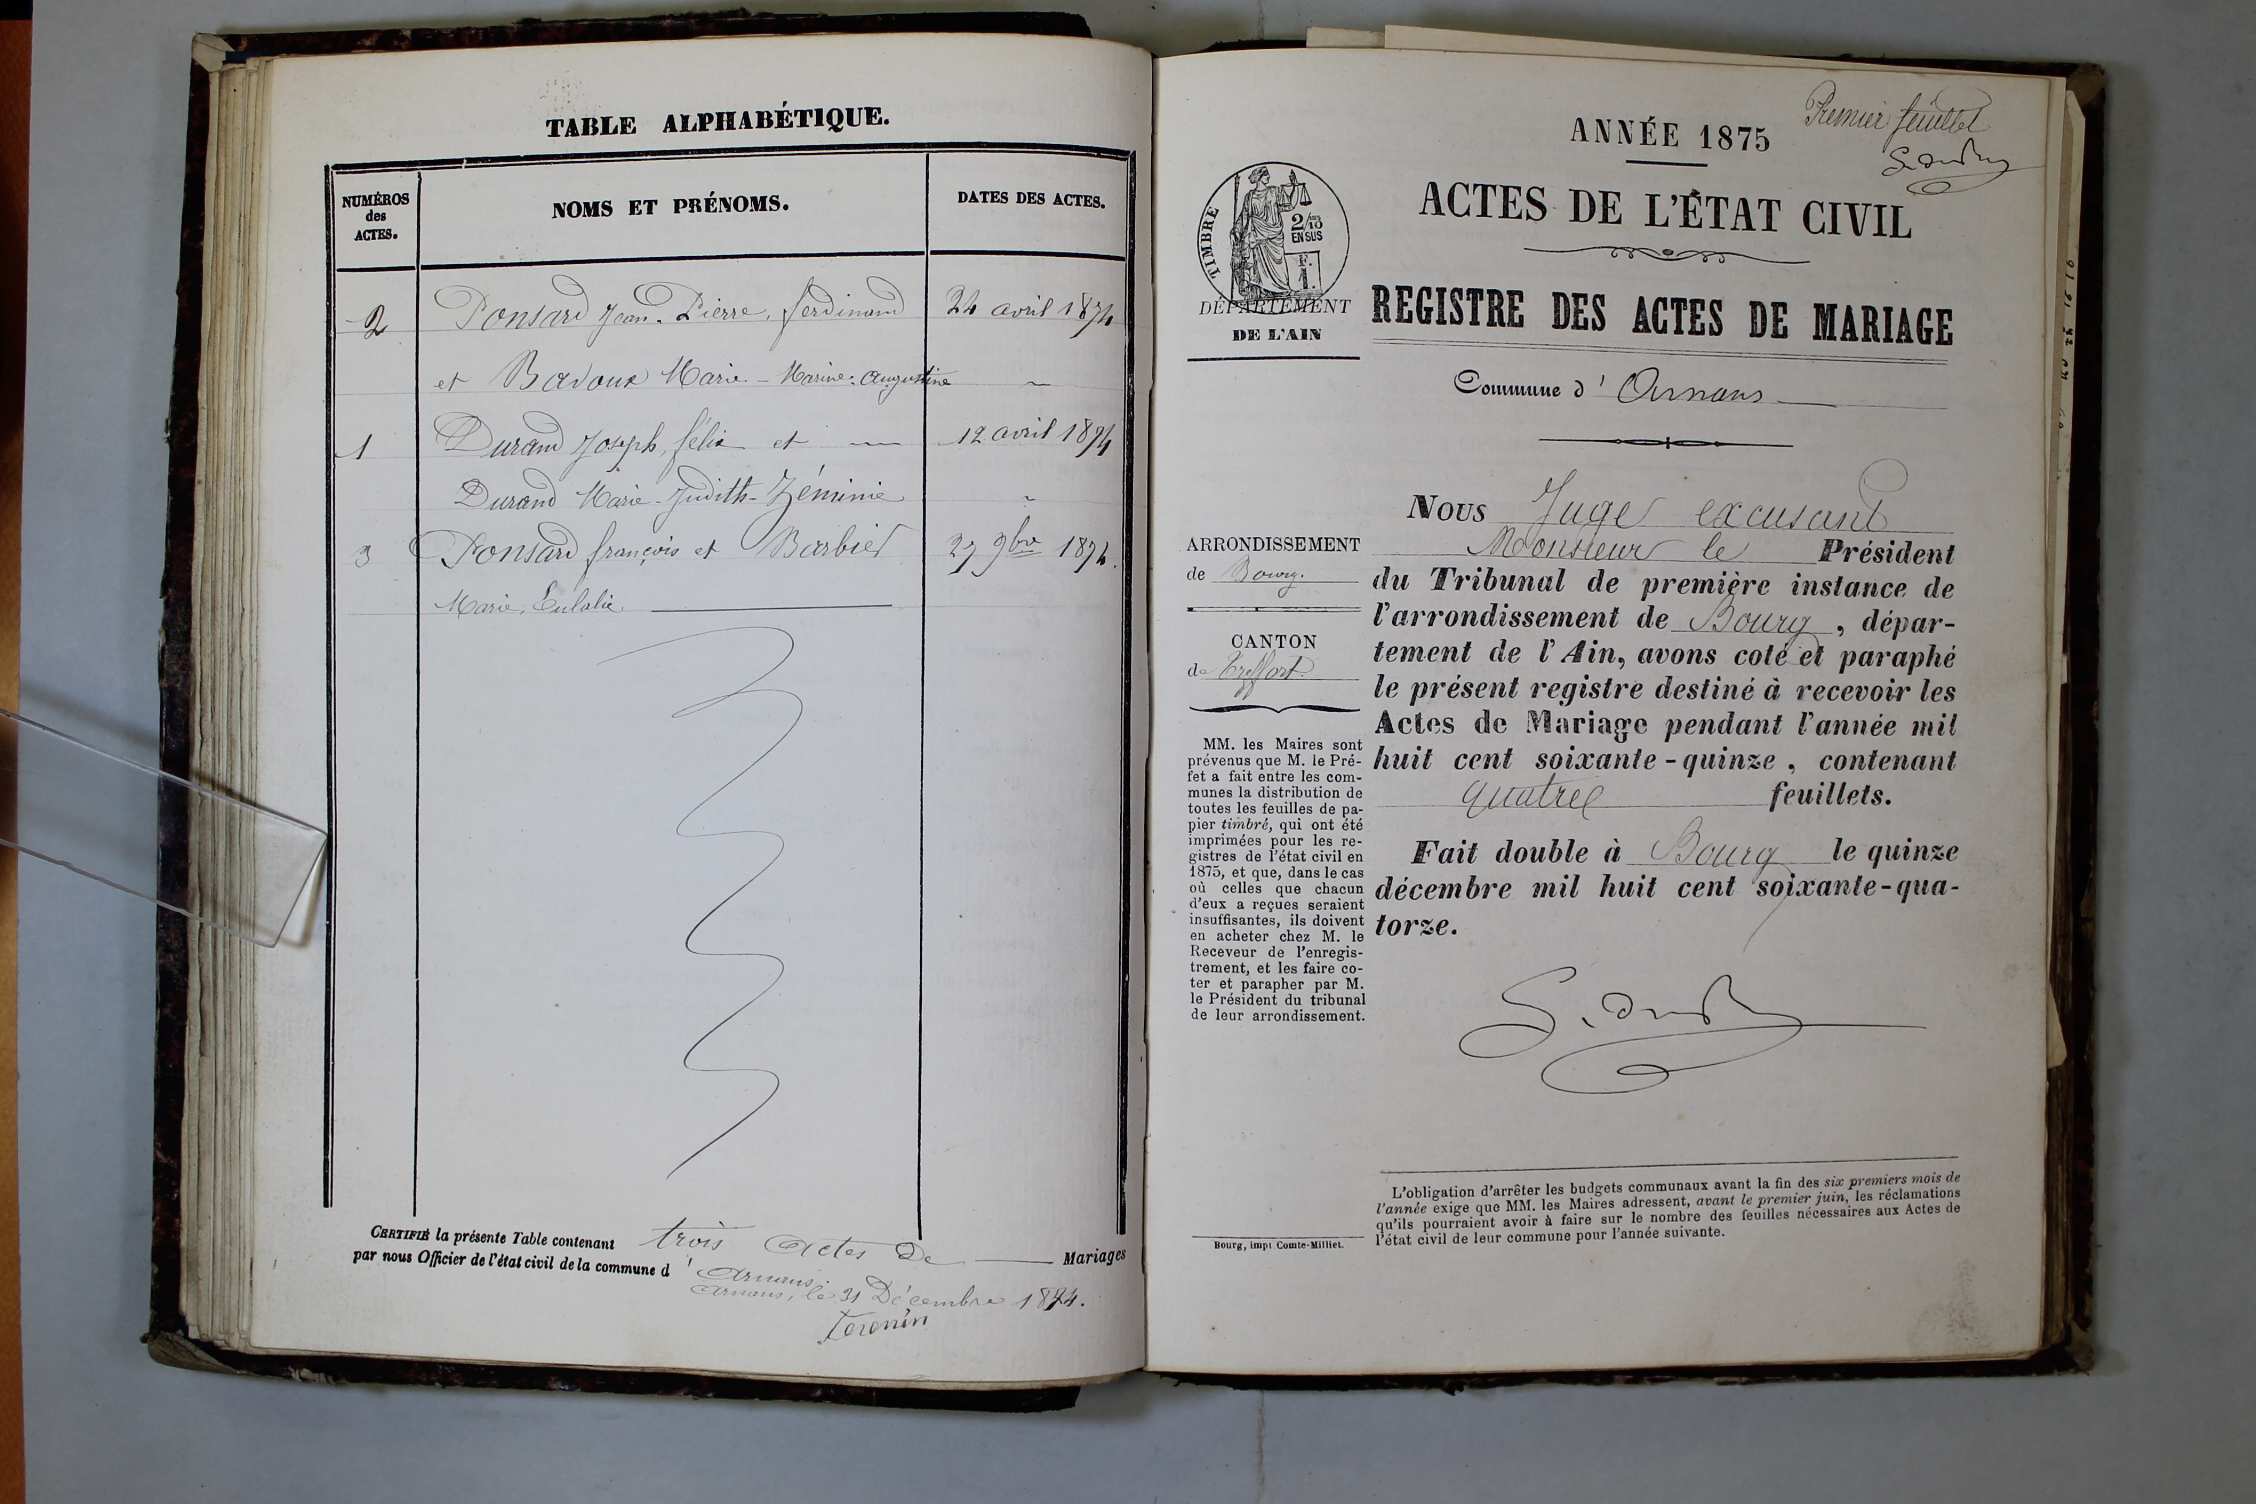 TABLE ALPHABÉTIQUE.
NUMÉROS
des
ACTES.
NOMS ET PRÉNOMS.
DATES DES ACTES.
2 Ponsard Jean-Pierre, ferdinand 24 avril 1874
et Badoux Marie-Marine-Augustine
1 Durand Joseph, félix et 12 avril 1874
Durand Marie-Judith-Zéminie
3 Ponsard françois et Barbier 27 9bre 1874.
Marie, Eulalie
CERTIFIÉ la présente Table contenant trois actes de Mariages
par nous Officier de l'état civil de la commune d' Arnans.
Arnans, le 31 Décembre 1874.
Premier feuillet
ANNÉE 1875
ACTES DE L'ÉTAT CIVIL
TIMBRE
2/10
EN SUS
F.
1.
DÉPARTEMENT
DE L'AIN
REGISTRE DES ACTES DE MARIAGE
Commune d' Arnans
ARRONDISSEMENT
de Bourg.
CANTON
de Treffort
MM. les Maires sont
prévenus que M. le Pré-
fet a fait entre les com-
munes la distribution de
toutes les feuilles de pa-
pier timbré, qui ont été
imprimées pour les re-
gistres de l'état civil en
1875, et que, dans le cas
où celles que chacun
d'eux a reçues seraient
insuffisantes, ils doivent
en acheter chez M. le
Receveur de l'enregis-
trement, et les faire co-
ter et parapher par M.
le Président du tribunal
de leur arrondissement.
Bourg, impr Comte-Milliet.
Nous Juge excusant
Monsieur le Président
du Tribunal de première instance de
l'arrondissement de Bourg, dépar-
tement de l'Ain, avons coté et paraphé
le présent registre destiné à recevoir les
Actes de Mariage pendant l'année mil
huit cent soixante-quinze, contenant
quatre feuillets.
Fait double à Bourg le quinze
décembre mil huit cent soixante-qua-
torze.
L'obligation d'arrêter les budgets communaux avant la fin des six premiers mois de
l'année exige que MM. les Maires adressent, avant le premier juin, les réclamations
qu'ils pourraient avoir à faire sur le nombre des feuilles nécessaires aux Actes de
l'état civil de leur commune pour l'année suivante.